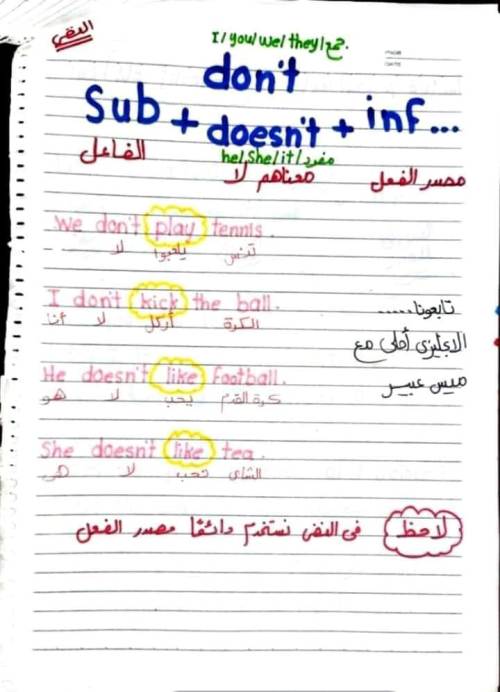 النفى
I/you/we/they/جمع.
don't
Sub + doesn't + inf...
he/She/it/مفرد
الفاعل معناهم لا مصدر الفعل
We don't play tennis.
لا يلعبوا تنس
I don't kick the ball.
أنا لا أركل الكرة
تابعونا.....
الانجليزى أحلى مع
ميس عبير
He doesn't like football.
هو لا يحب كرة القدم
She doesn't like tea.
هى لا تحب الشاى
لاحظ فى النفى نستخدم دائمًا مصدر الفعل